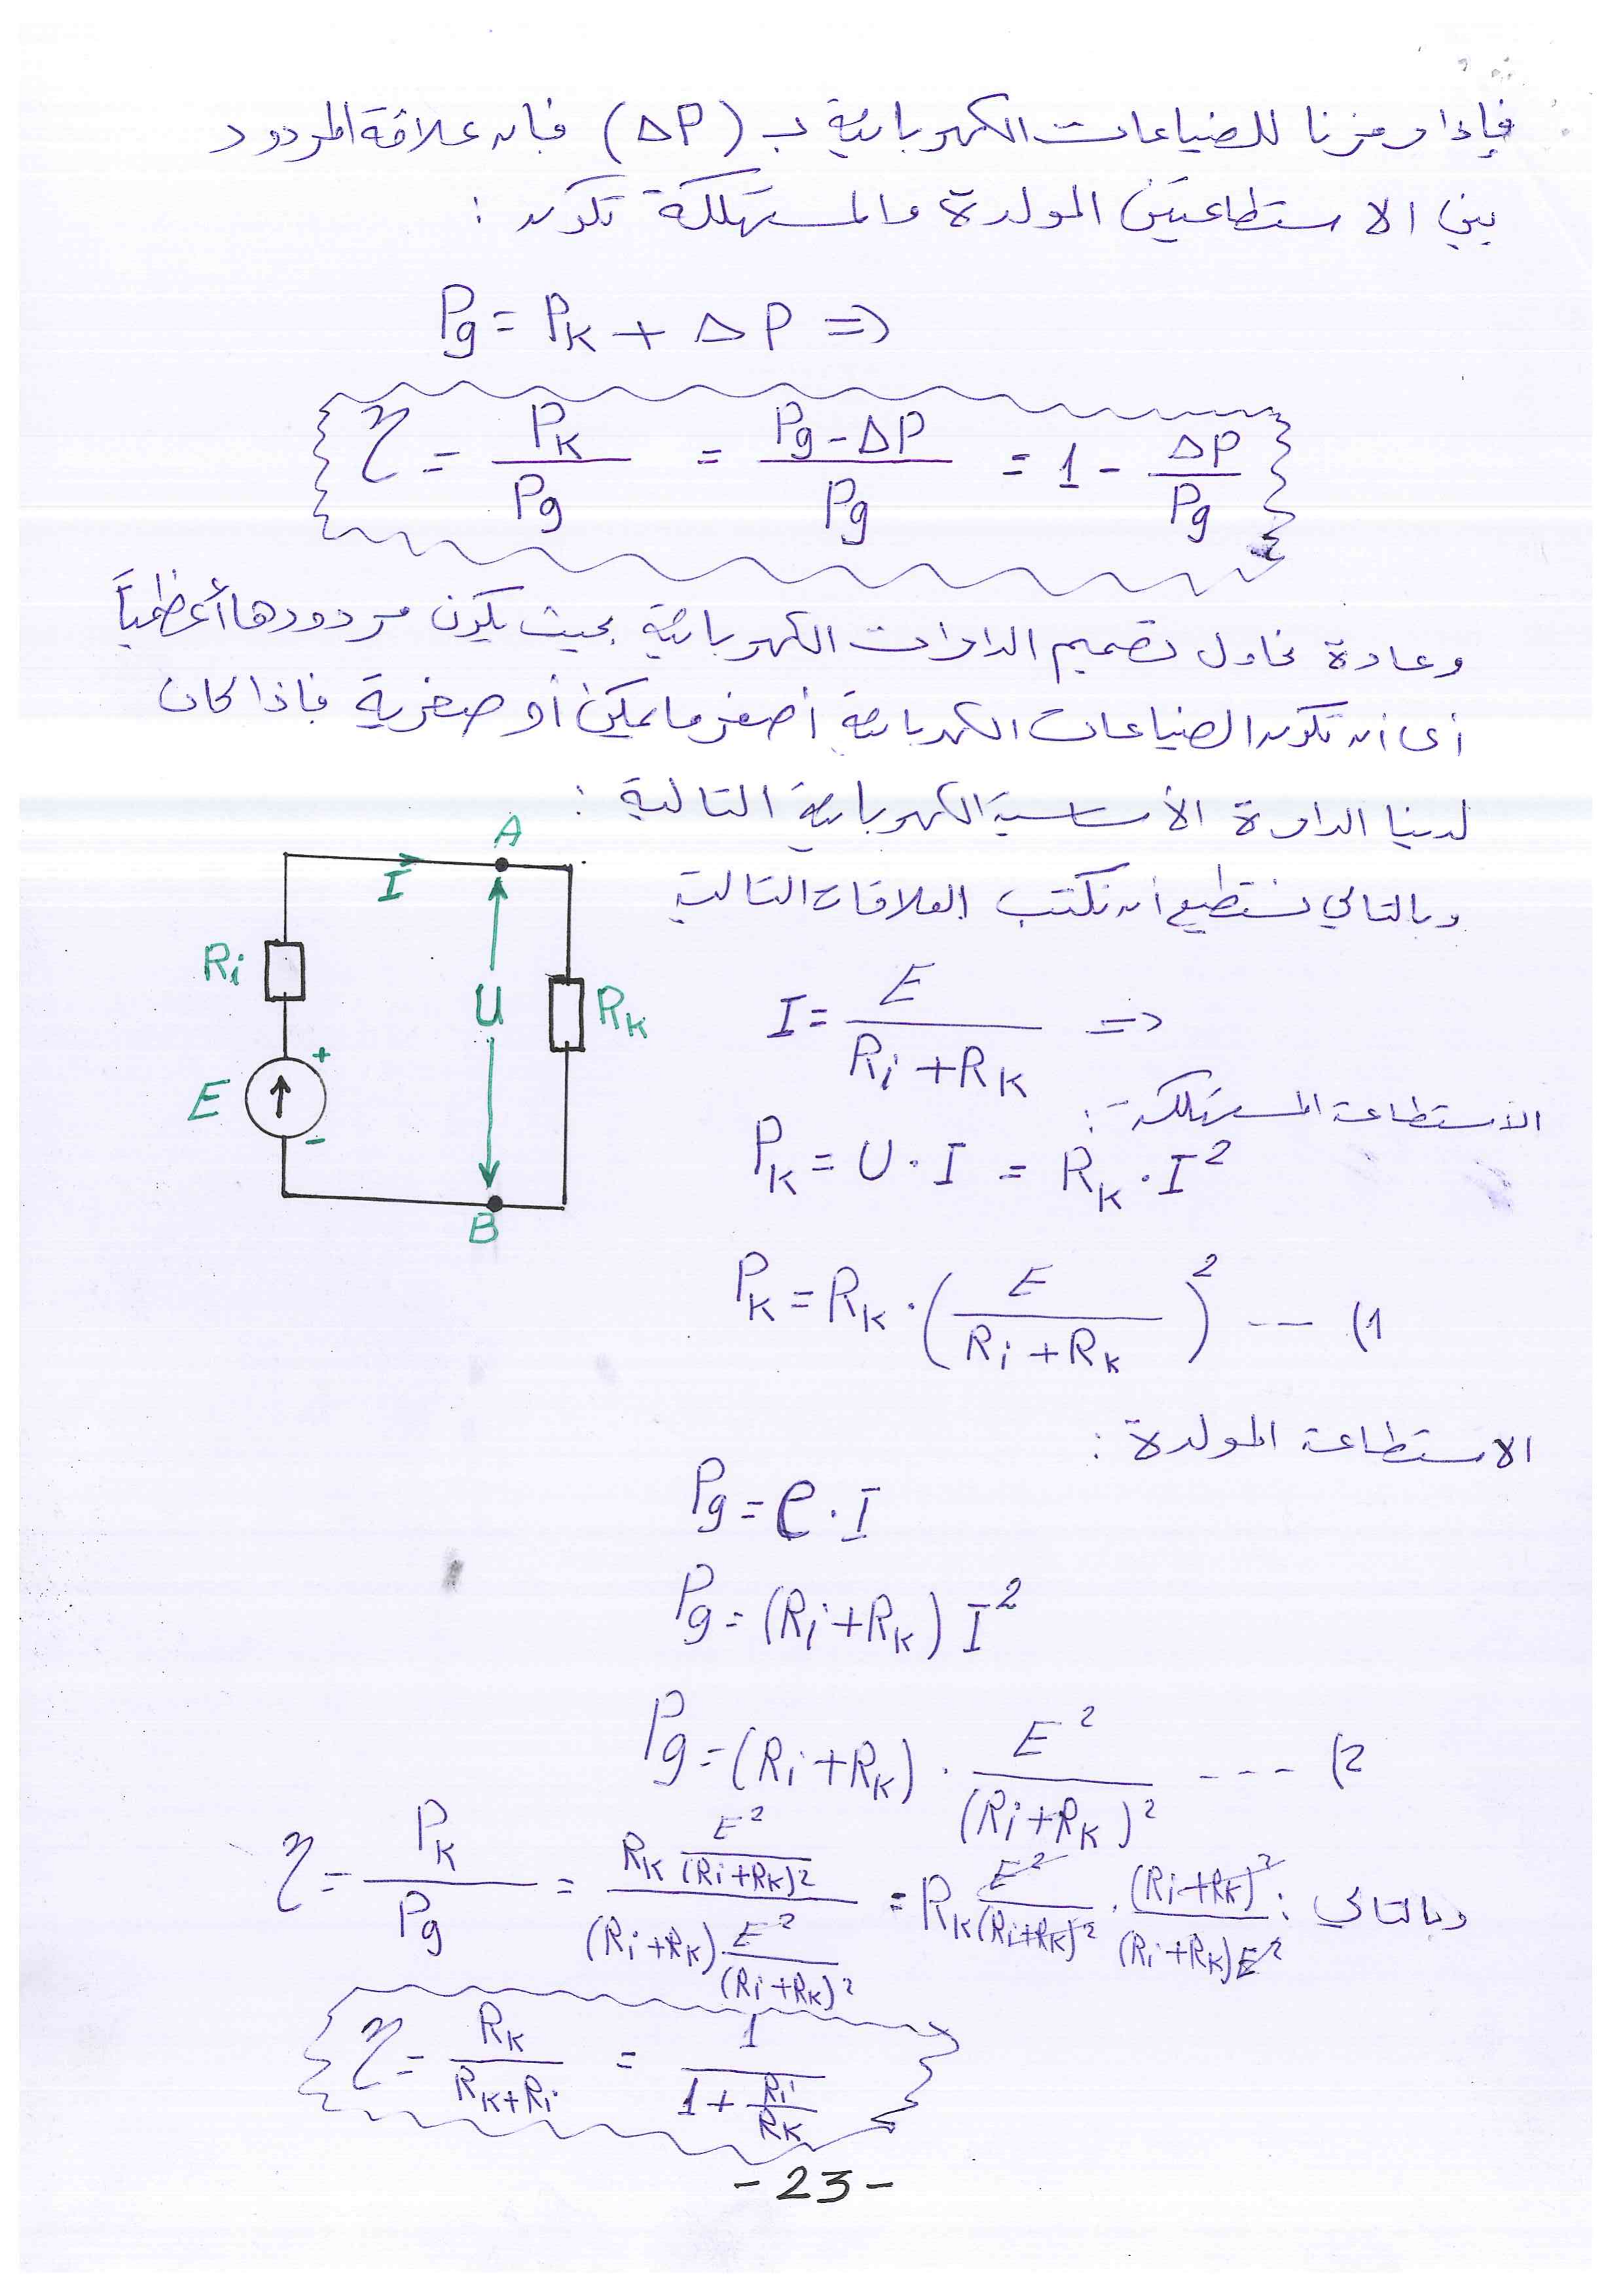 فإذا رمزنا للضياعات الكهربائية بـ (ΔP) فإن علاقة المردود
بين الاستطاعتين المولدة والمستهلكة تكون :
Pg = PK + ΔP ⇒
η = PK / Pg = (Pg - ΔP) / Pg = 1 - ΔP / Pg
وعادة نحاول تصميم الدارات الكهربائية بحيث يكون مردودها أعظمياً
أي أن تكون الضياعات الكهربائية أصغر ما يمكن أو صفرية فإذا كان
لدينا الدارة الأساسية الكهربائية التالية :
وبالتالي نستطيع أن نكتب العلاقات التالية
A
I
Ri
U
RK
E
+
-
B
I = E / (Ri + RK) ⇒
الاستطاعة المستهلكة :
PK = U · I = RK · I²
PK = RK · (E / (Ri + RK))² --- (1
الاستطاعة المولدة :
Pg = e · I
Pg = (Ri + RK) I²
Pg = (Ri + RK) · E² / (Ri + RK)² --- (2
وبالتالي : η = PK / Pg = (RK E² / (Ri + RK)²) / ((Ri + RK) E² / (Ri + RK)²) = RK E² / (Ri + RK)² · (Ri + RK)² / ((Ri + RK) E²)
η = RK / (RK + Ri) = 1 / (1 + Ri / RK)
- 23 -